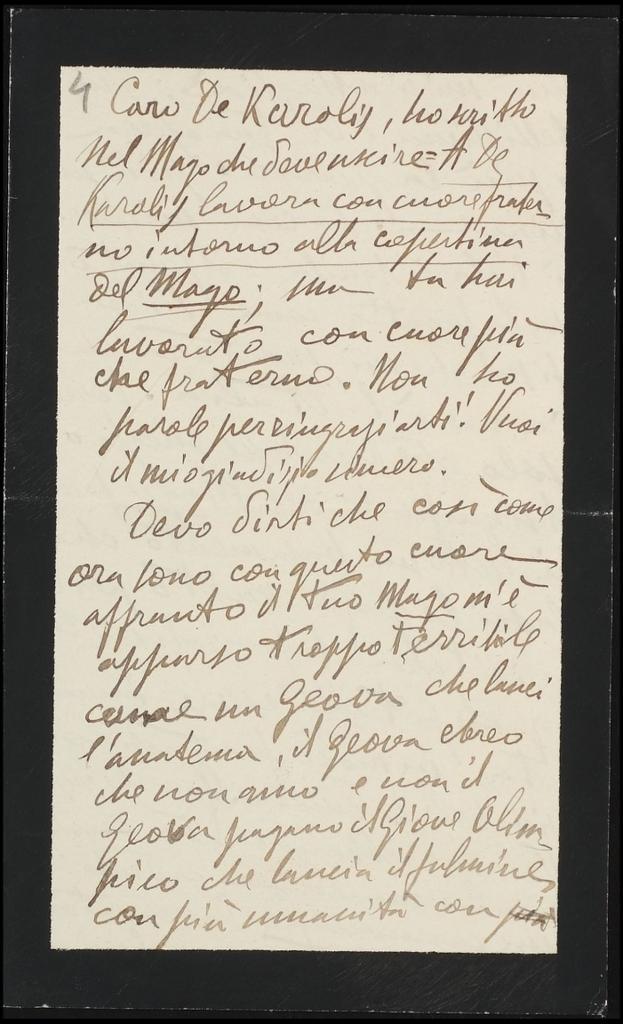 4 Caro De Karolis, ho scritto
nel Mago che deve uscire = A De
Karolis lavora con cuore frater-
no intorno alla copertina
del Mago; ma tu hai
lavorato con cuore più
che fraterno. Non ho
parole per ringraziarti! Vuoi
il mio giudizio sincero.
Devo dirti che così come
ora sono con questo cuore
affranto il tuo Mago m'è
apparso troppo terribile
come un Geova che lanci
l'anatema, il Geova ebreo
che non amo e non il
Geova pagano il Giove Olim-
pico che lancia il fulmine
con più umanità con più